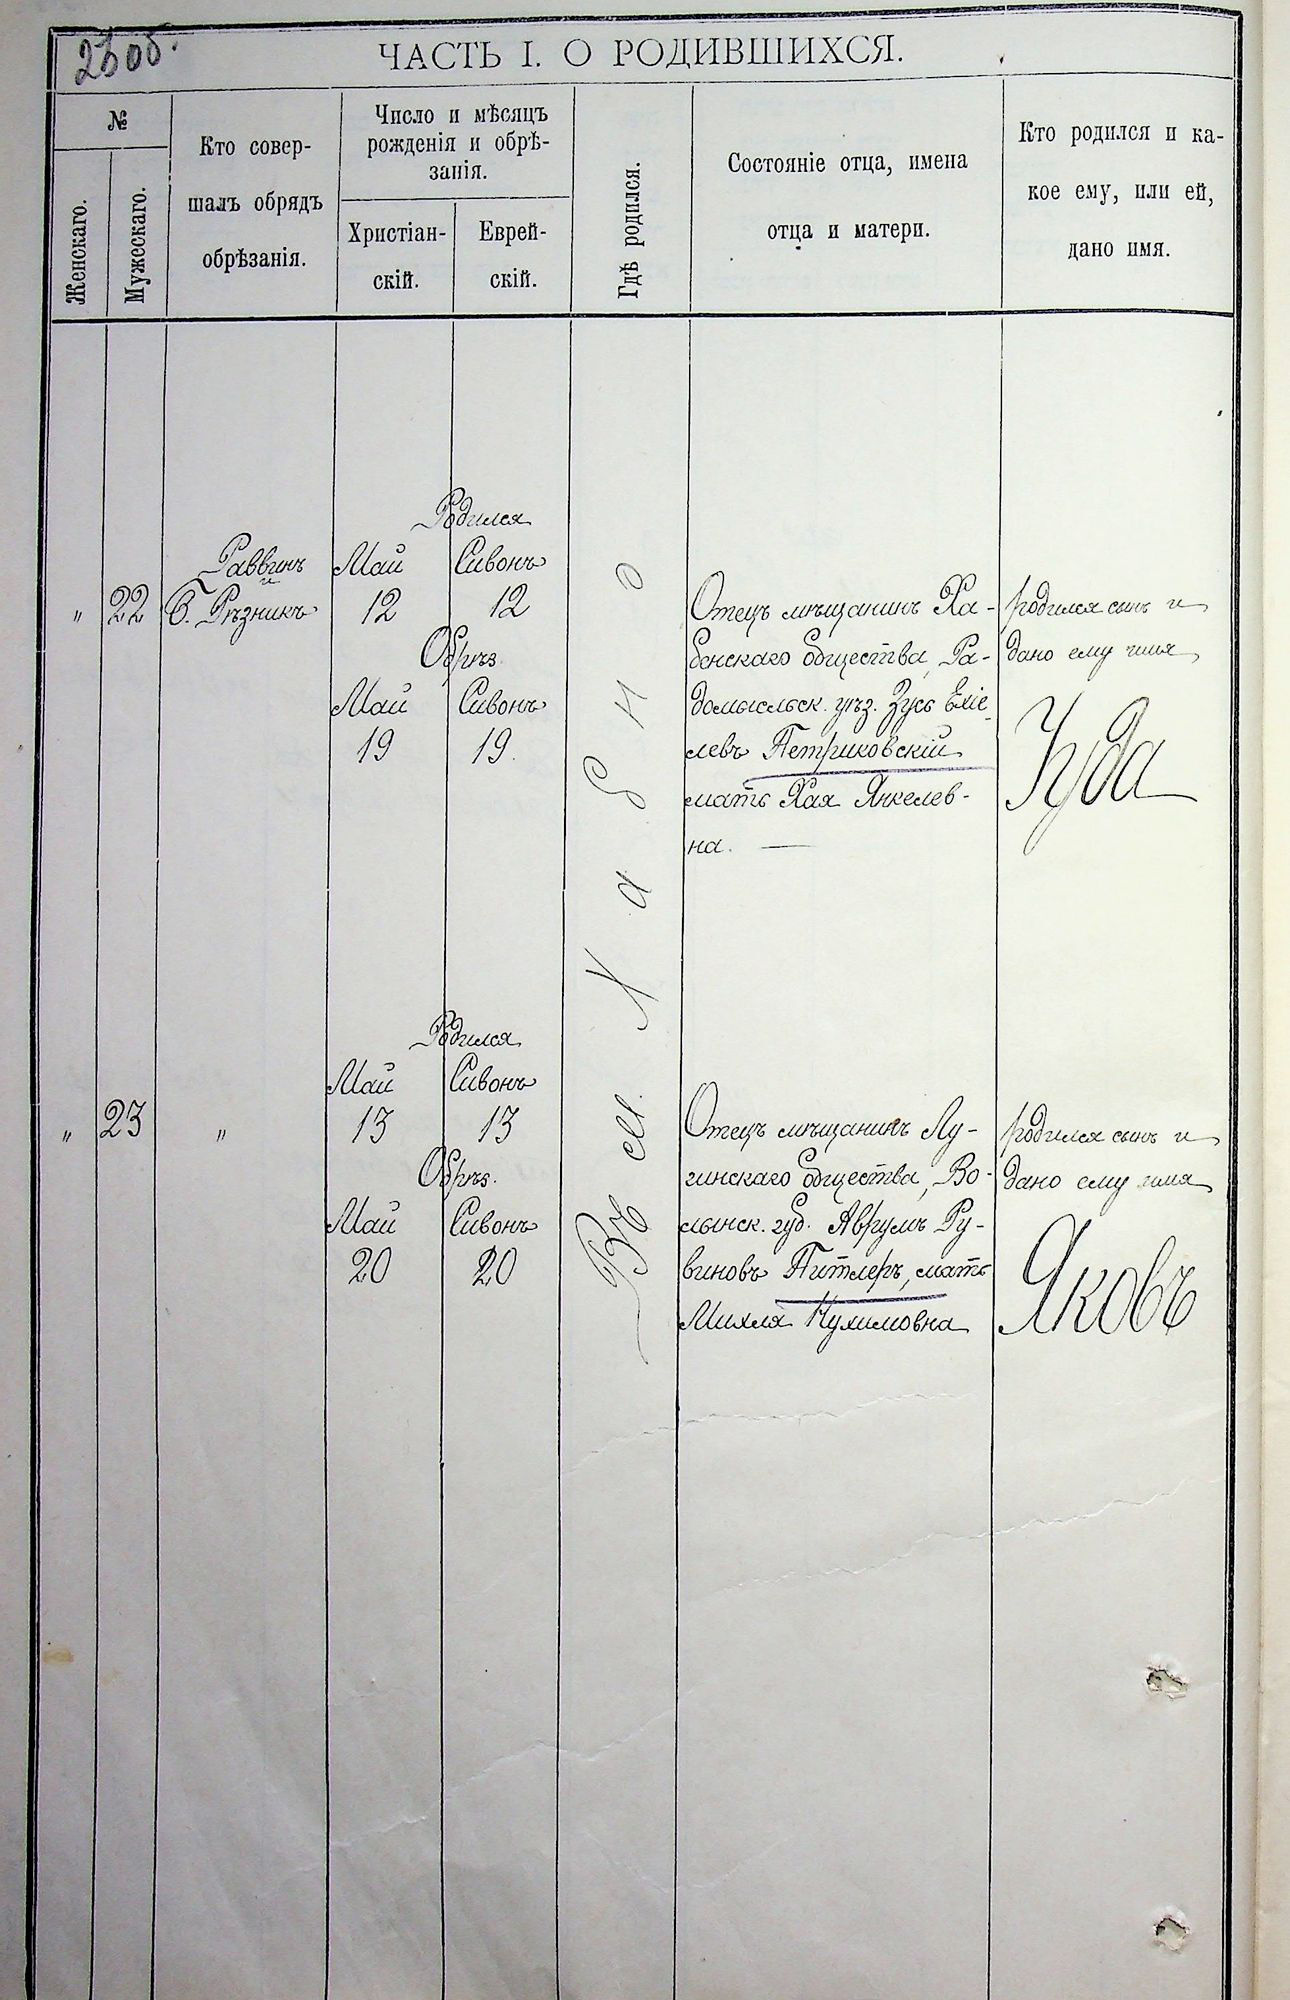 230об.
ЧАСТЬ I. О РОДИВШИХСЯ.
№
Женскаго.
Мужескаго.
Кто совер-
шалъ обрядъ
обрѣзанія.
Число и мѣсяцъ
рожденія и обрѣ-
занія.
Христіан-
скій.
Еврей-
скій.
Гдѣ родился.
Состояніе отца, имена
отца и матери.
Кто родился и ка-
кое ему, или ей,
дано имя.
Въ м. Хабно
"
22
Раввинъ
и
Б. Рѣзникъ
Родился
Май Сивонъ
12 12
Обрѣз.
Май Сивонъ
19 19.
Отецъ мѣщанинъ Ха-
бенскаго общества, Ра-
домысльск. уѣз. Зусь Ехіе-
левъ Петриковскій
мать Хая Янкелев-
на.
родился сынъ и
дано ему имя
Іуда
"
23
"
Родился
Май Сивонъ
13 13
Обрѣз.
Май Сивонъ
20 20
Отецъ мѣщанинъ Лу-
гинскаго общества, Во-
лынск. губ. Аврумъ Ру-
виновъ Питлеръ, мать
Михля Нухимовна
родился сынъ и
дано ему имя
Яковъ